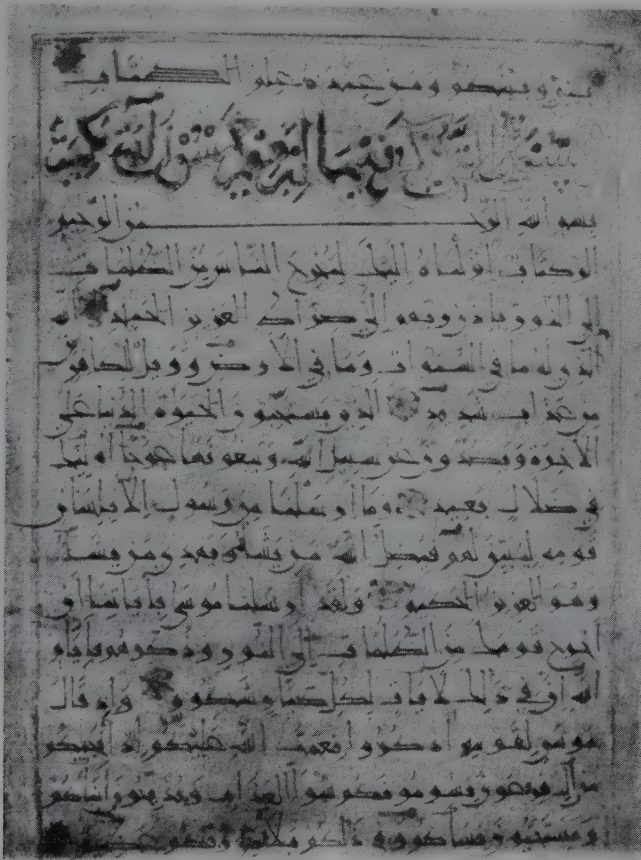 بيني وبينكم ومن عنده علم الكتاب
بسم الله الرحمن الرحيم
الر كتاب أنزلناه إليك لتخرج الناس من الظلمات
إلى النور بإذن ربهم إلى صراط العزيز الحميد الله
الذي له ما في السموات وما في الأرض وويل للكافرين
من عذاب شديد الذين يستحبون الحيوة الدنيا على
الآخرة ويصدون عن سبيل الله ويبغونها عوجا أولئك
في ضلال بعيد وما أرسلنا من رسول إلا بلسان
قومه ليبين لهم فيضل الله من يشاء ويهدي من يشاء
وهو العزيز الحكيم ولقد أرسلنا موسى بآياتنا أن
أخرج قومك من الظلمات إلى النور وذكرهم بأيام
الله إن في ذلك لآيات لكل صبار شكور وإذ قال
موسى لقومه اذكروا نعمت الله عليكم إذ أنجيكم
من آل فرعون يسومونكم سوء العذاب ويذبحون أبناءكم
ويستحيون نساءكم وفي ذلكم بلاء من ربكم عظيم